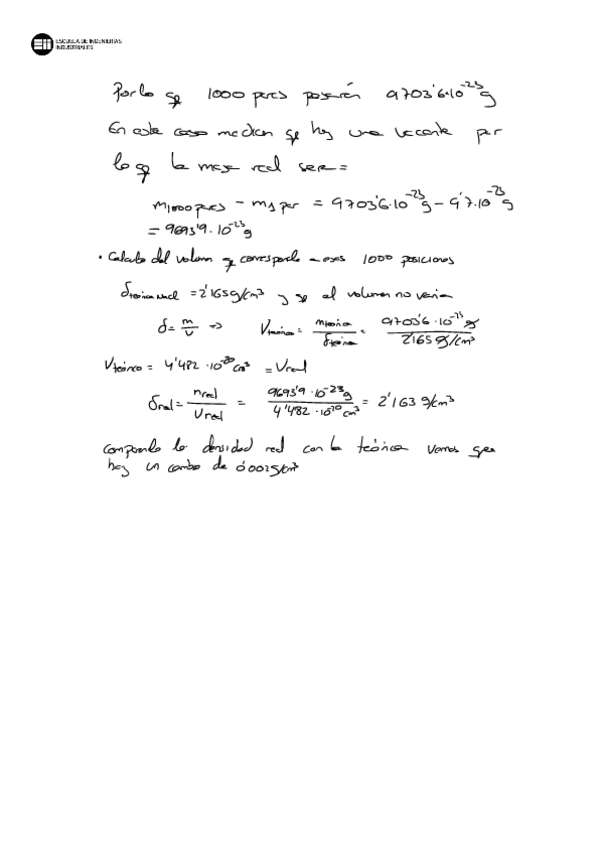 ESCUELA DE INGENIERÍAS
INDUSTRIALES
Por lo q 1000 pares poseerán 9703'6·10⁻²³g
En este caso median q hay una vacante por
lo q la masa real será =
m1000 pares - m1 par = 9703'6·10⁻²³g - 9'7·10⁻²³g
= 9693'9·10⁻²³g
• Calculo del volumen q corresponde a esas 1000 posiciones
δteórica NaCl = 2'165g/cm³ y q el volumen no varia
δ = m/V => Vteórico = mteórica/δteórica = 9703'6·10⁻²³g / 2'165 g/cm³
Vteórico = 4'482·10⁻²⁰cm³ = Vreal
δreal = mreal/Vreal = 9693'9·10⁻²³g / 4'482·10⁻²⁰cm³ = 2'163 g/cm³
comparando la densidad real con la teórica vemos que
hay un cambio de 0'002g/cm³